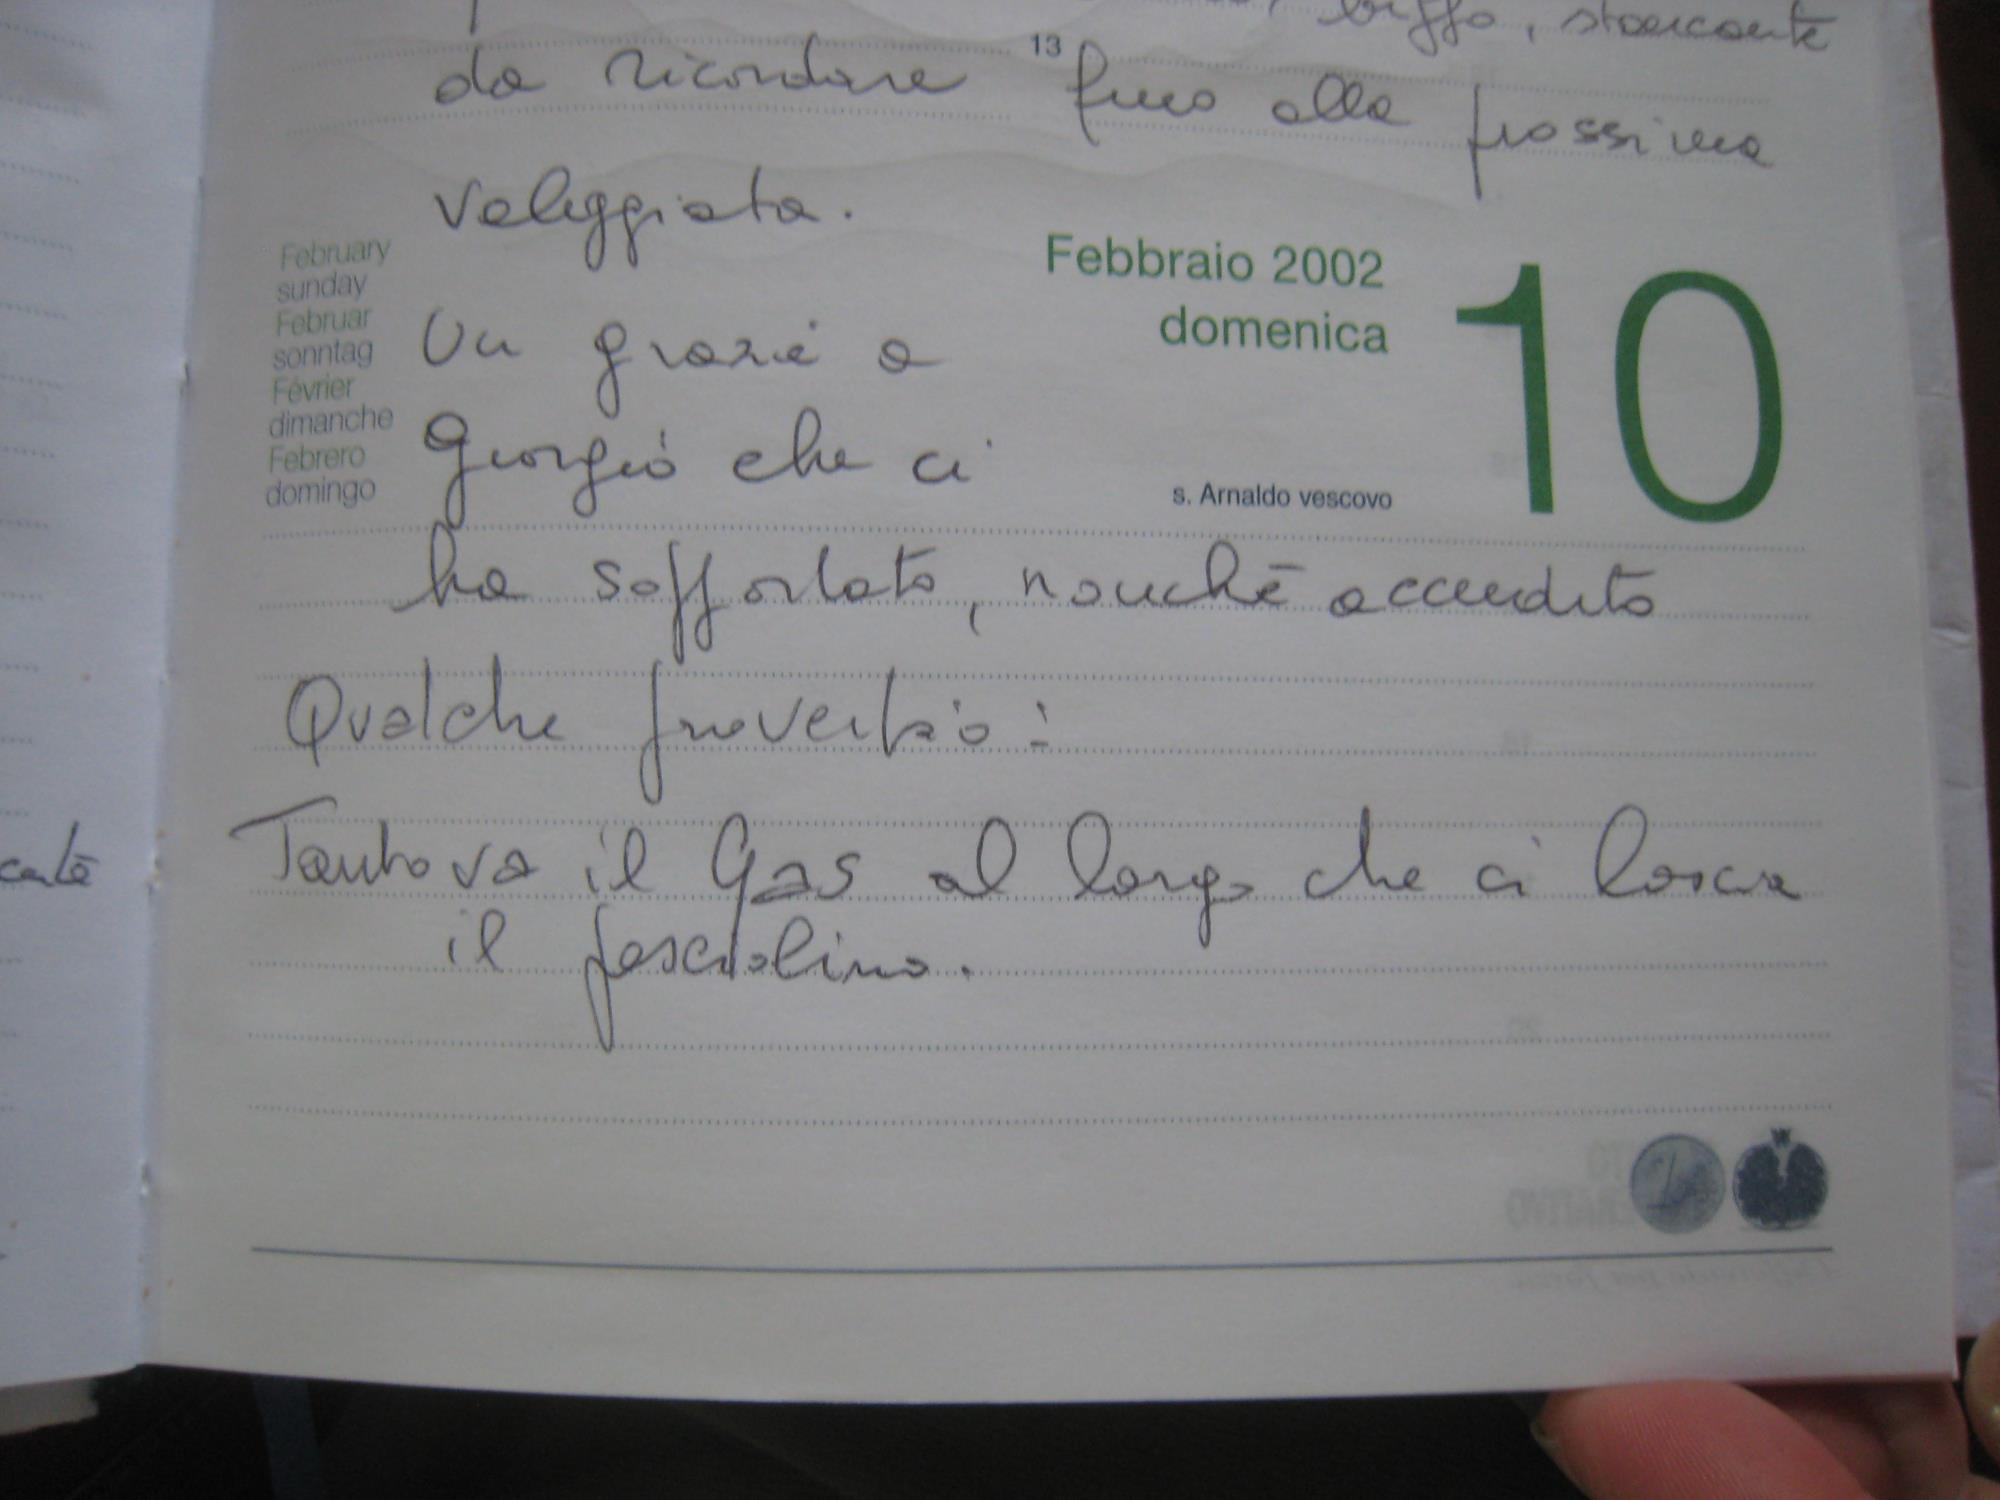 buffo, stancante
da ricordare fino alla prossima
13
veleggiata.
February
sunday
Februar
sonntag
Février
dimanche
Febrero
domingo
Febbraio 2002
domenica
10
s. Arnaldo vescovo
Un grazie a
Giorgio che ci
ha sopportato, nonché accudito
Qualche proverbio:
Tanto va il Gas al largo che ci lascia
il pesciolino.